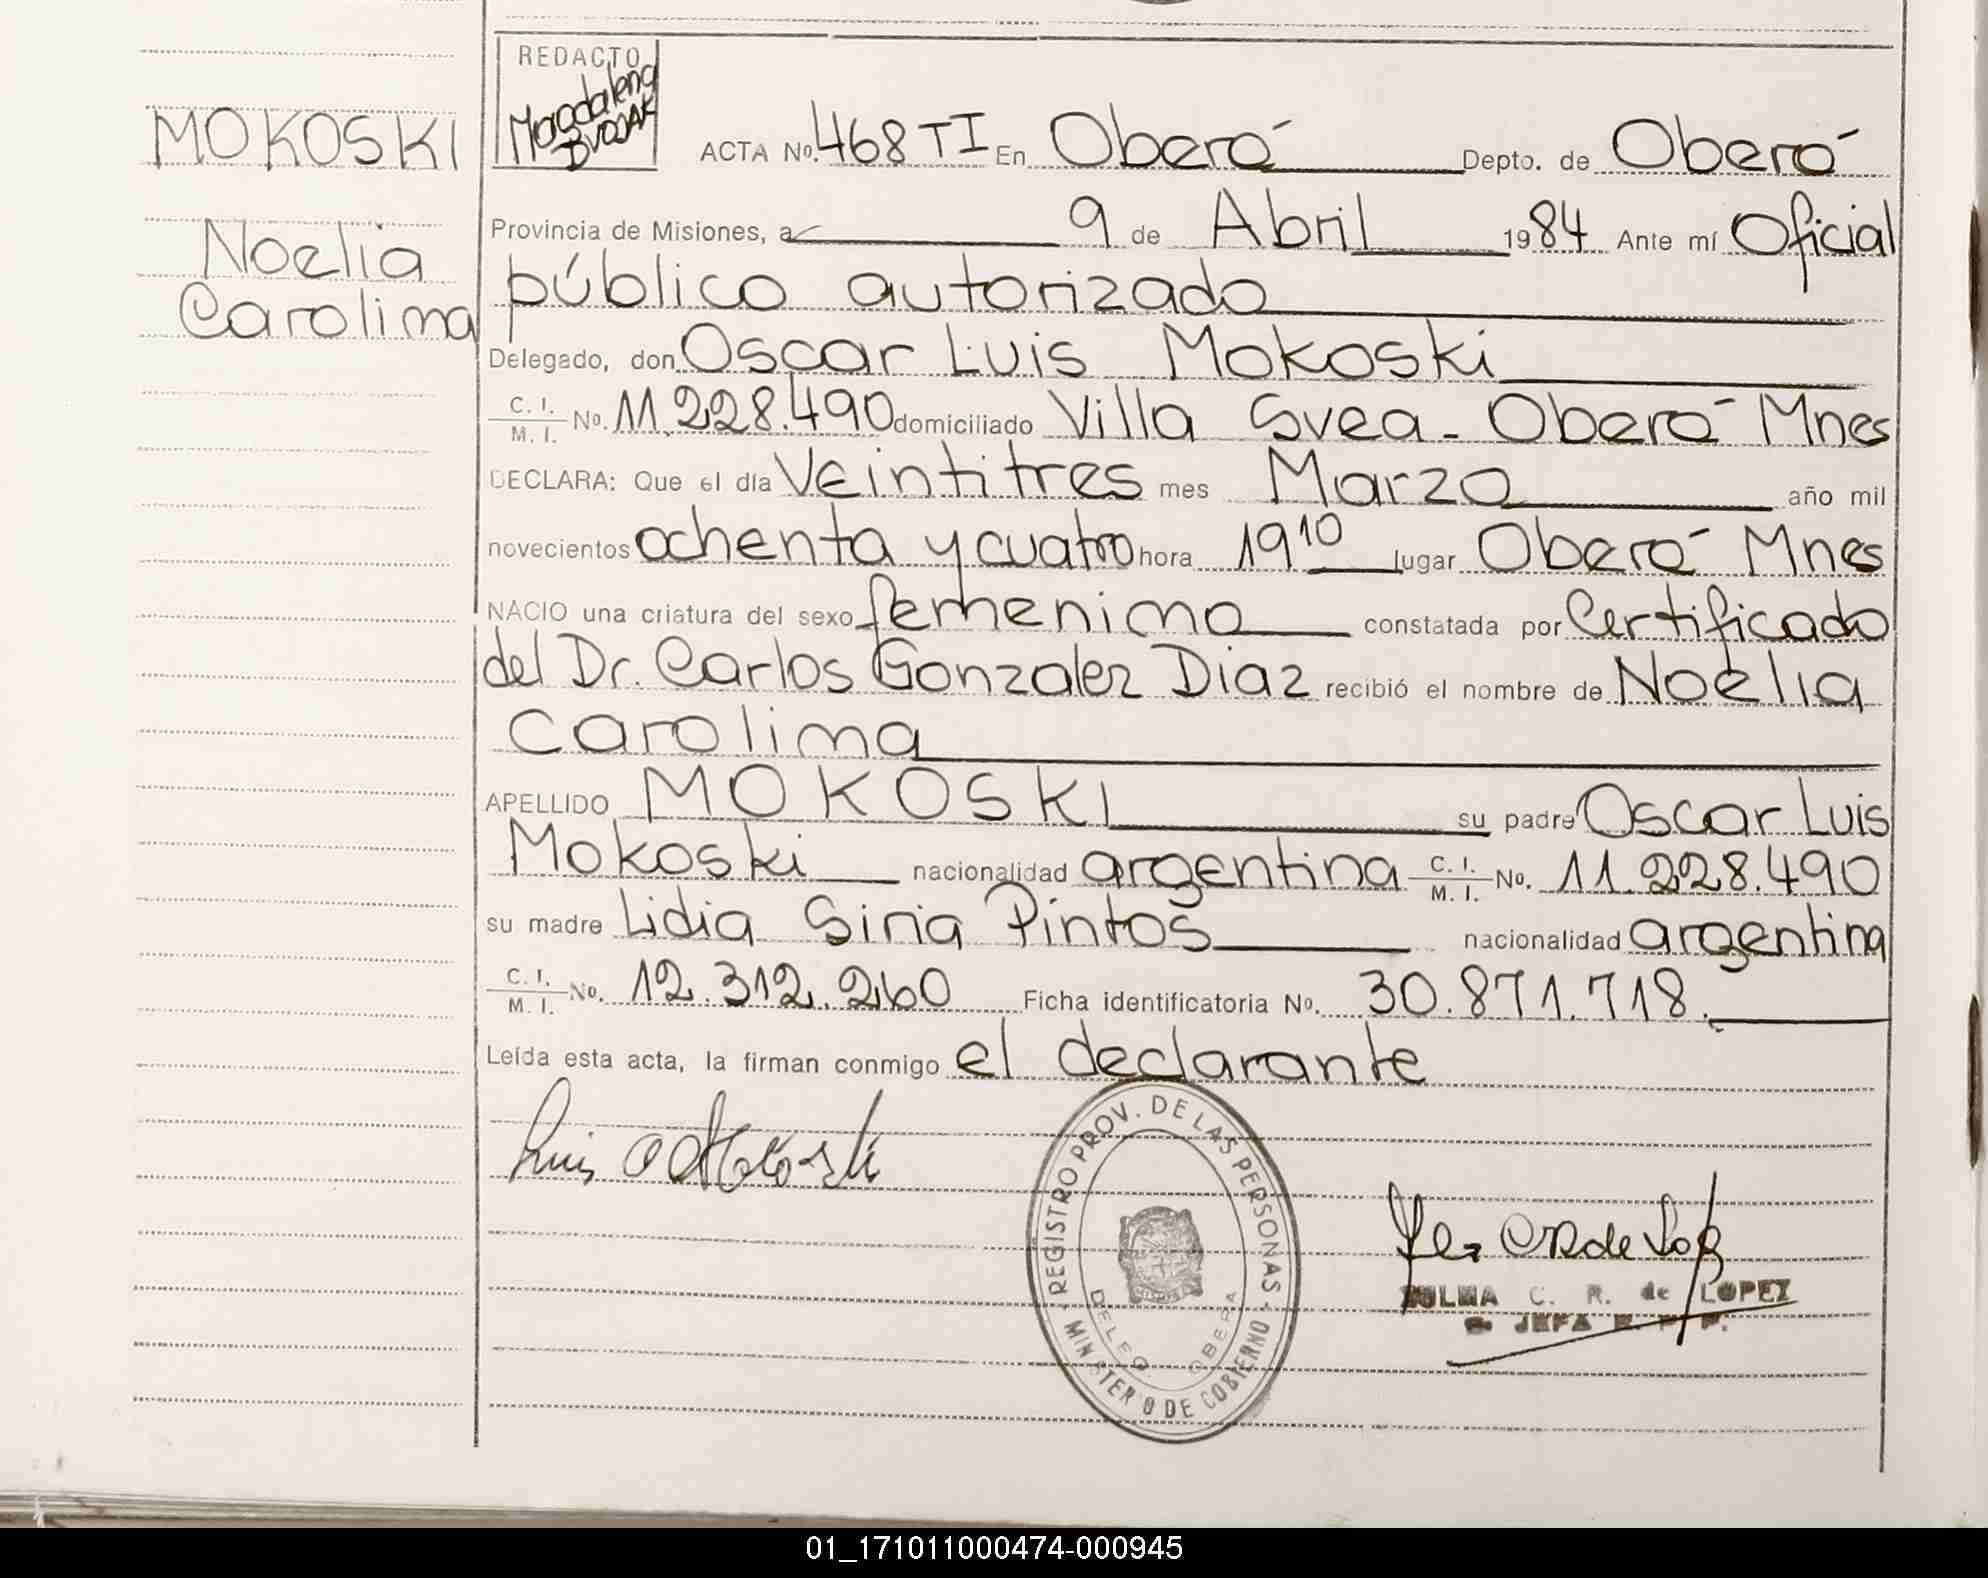 MOKOSKI
Noelia
Carolina
REDACTO
Magdalena
ACTA No. 468 TI En Oberá Depto. de Oberá
Provincia de Misiones, a 9 de Abril 1984 Ante mí Oficial
público autorizado
Delegado, don Oscar Luis Mokoski
C. I.
M. I. No. 11.228.490 domiciliado Villa Svea - Oberá Mnes
DECLARA: Que el día Veintitres mes Marzo año mil
novecientos ochenta y cuatro hora 19 10 lugar Oberá Mnes
NACIO una criatura del sexo femenino constatada por Certificado
del Dr. Carlos Gonzalez Diaz recibió el nombre de Noelia
Carolina
APELLIDO MOKOSKI su padre Oscar Luis
Mokoski nacionalidad argentina C. I.
M. I. No. 11.228.490
su madre Lidia Siria Pintos nacionalidad argentina
C. I.
M. I. No. 12.312.260 Ficha identificatoria No. 30.871.718.
Leída esta acta, la firman conmigo el declarante
Luis O Mokoski
REGISTRO PROV. DE LAS PERSONAS
MINISTERIO DE GOBIERNO
DELEG. OBERA
ZULMA C. R. de LOPEZ
JEFA R. P. P.
01_171011000474-000945